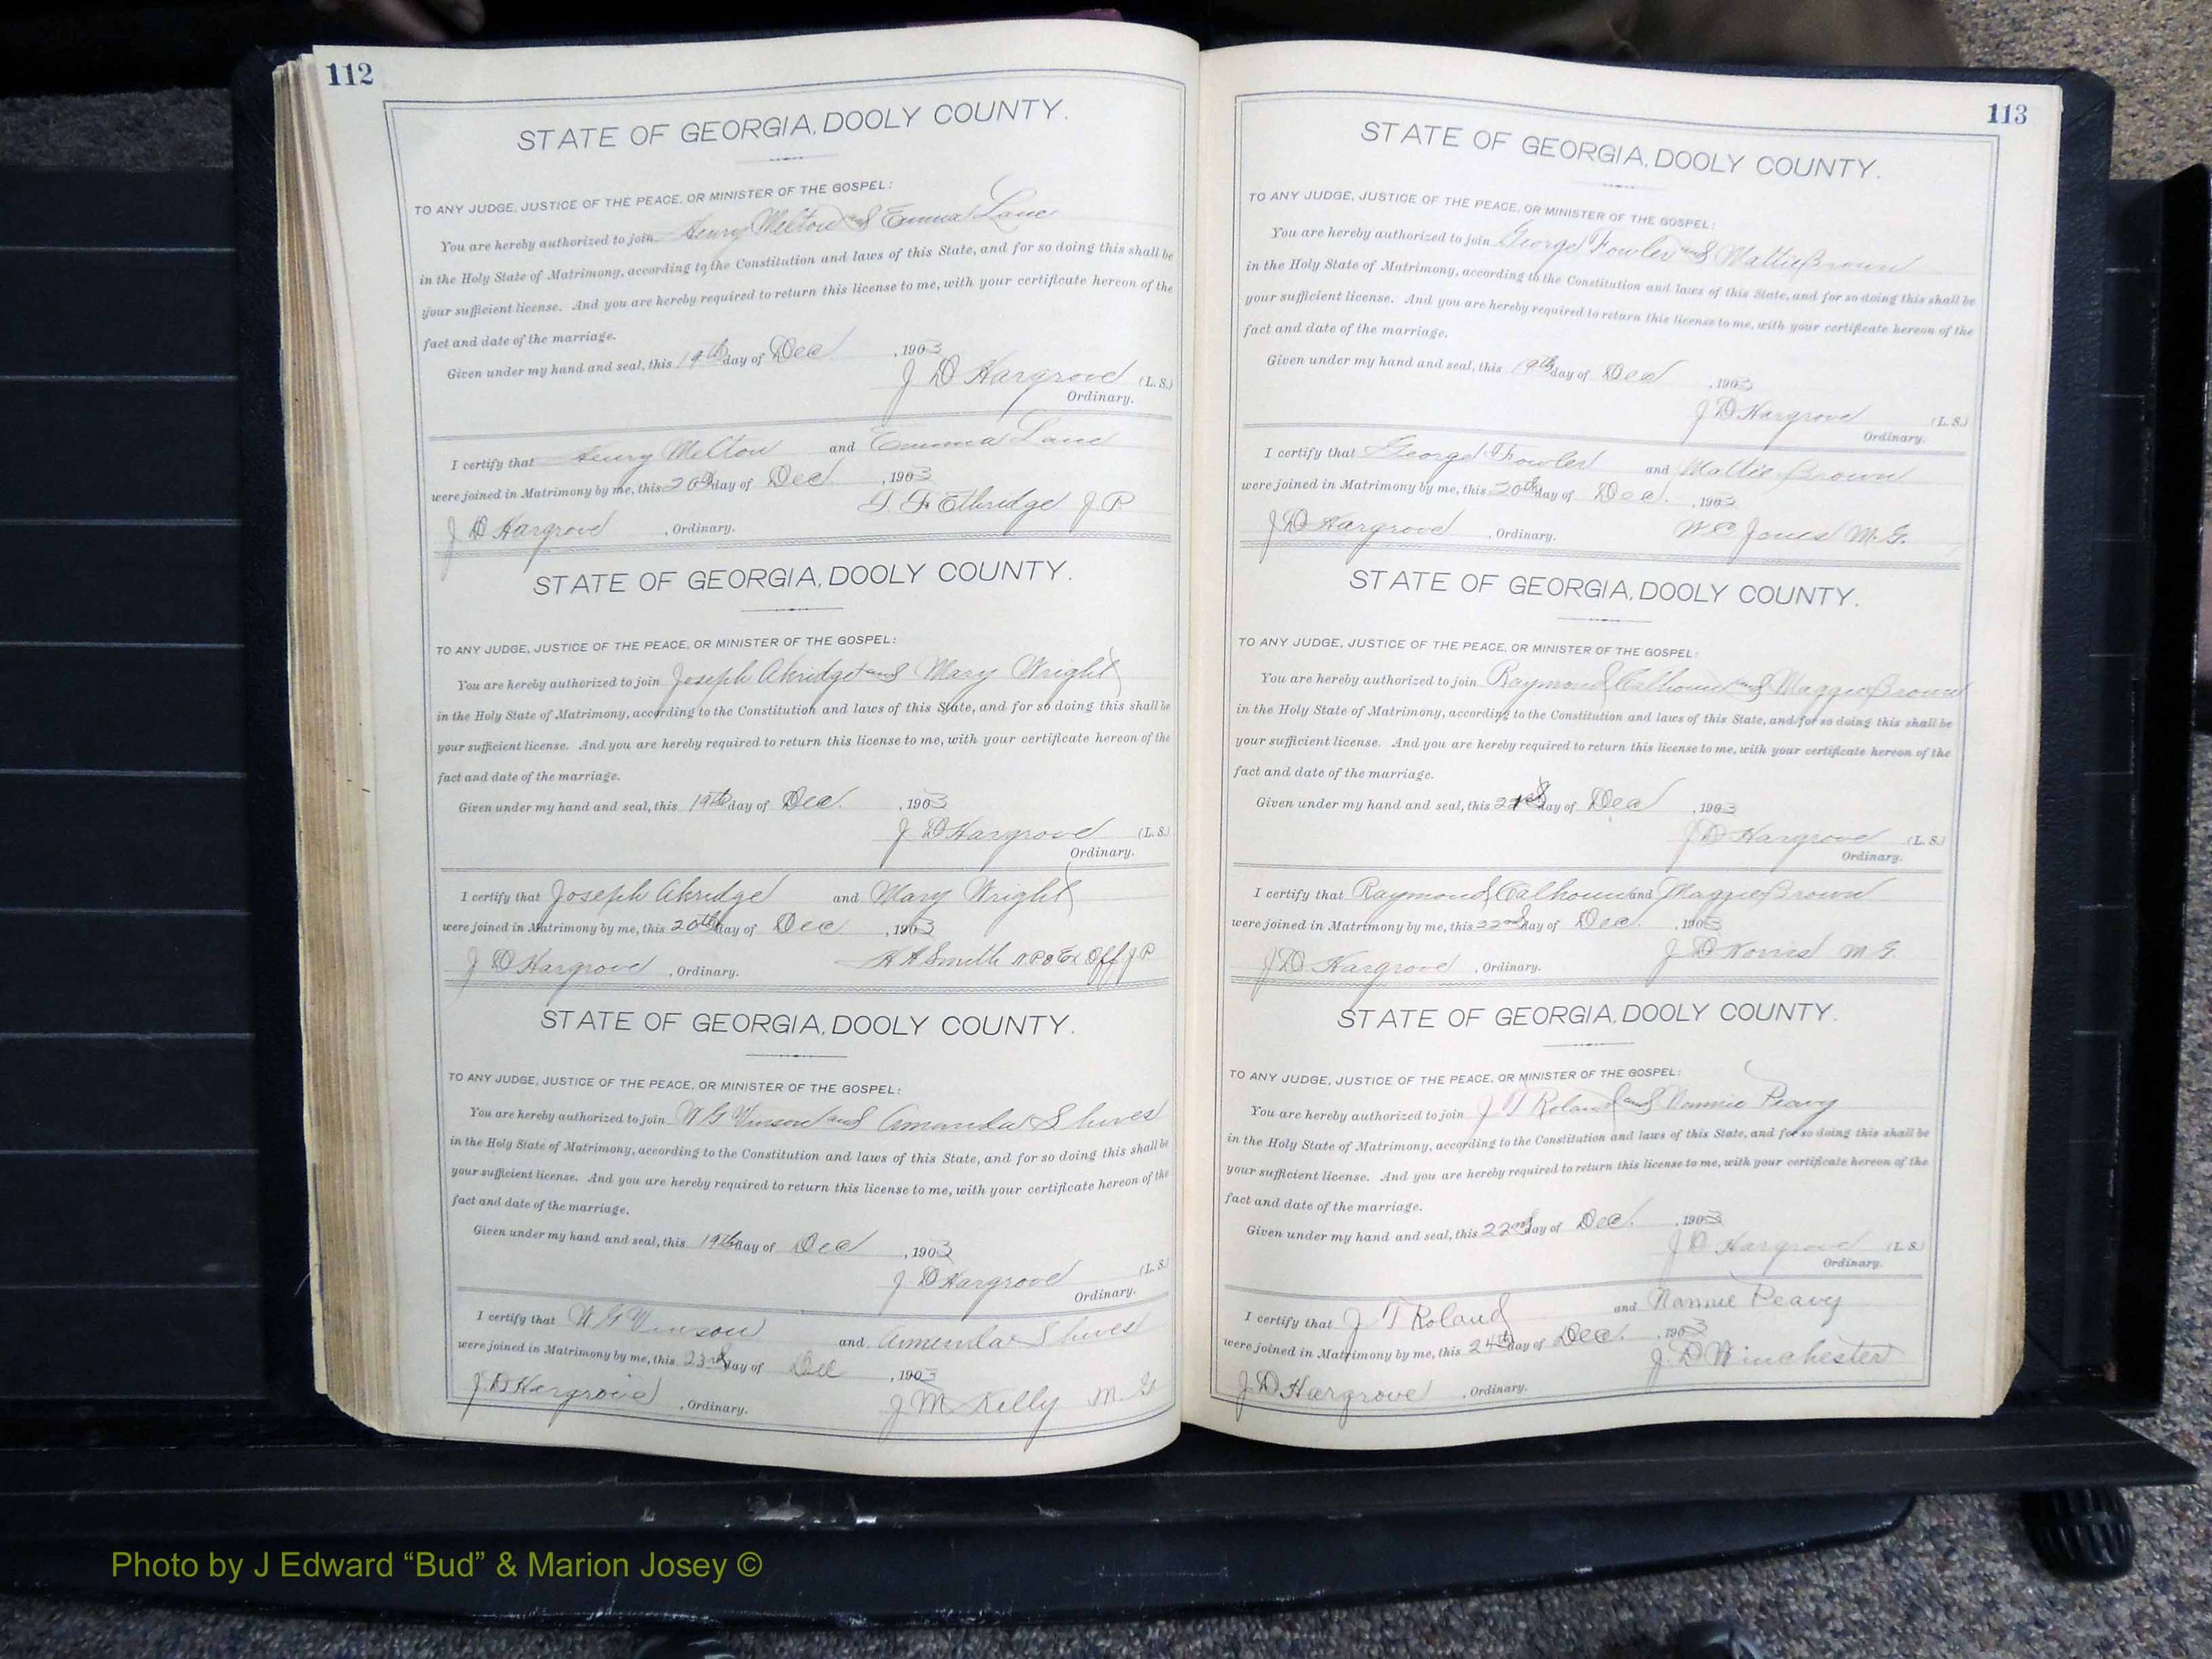 112
STATE OF GEORGIA, DOOLY COUNTY.
TO ANY JUDGE, JUSTICE OF THE PEACE, OR MINISTER OF THE GOSPEL:
You are hereby authorized to join Henry Melton and Emma Lane
in the Holy State of Matrimony, according to the Constitution and laws of this State, and for so doing this shall be
your sufficient license. And you are hereby required to return this license to me, with your certificate hereon of the
fact and date of the marriage.
Given under my hand and seal, this 19th day of Dec , 1903
J D Hargrove (L. S.)
Ordinary.
I certify that Henry Melton and Emma Lane
were joined in Matrimony by me, this 20th day of Dec , 1903
F. Etheridge J. P.
J D Hargrove , Ordinary.
STATE OF GEORGIA, DOOLY COUNTY.
TO ANY JUDGE, JUSTICE OF THE PEACE, OR MINISTER OF THE GOSPEL:
You are hereby authorized to join Joseph Akridge and Mary Wright
in the Holy State of Matrimony, according to the Constitution and laws of this State, and for so doing this shall be
your sufficient license. And you are hereby required to return this license to me, with your certificate hereon of the
fact and date of the marriage.
Given under my hand and seal, this 19th day of Dec. , 1903
J D Hargrove (L. S.)
Ordinary.
I certify that Joseph Akridge and Mary Wright
were joined in Matrimony by me, this 20th day of Dec , 1903
H A Smith N P & Ex Off J P
J D Hargrove , Ordinary.
STATE OF GEORGIA, DOOLY COUNTY.
TO ANY JUDGE, JUSTICE OF THE PEACE, OR MINISTER OF THE GOSPEL:
You are hereby authorized to join W G Vinson and Amanda Shives
in the Holy State of Matrimony, according to the Constitution and laws of this State, and for so doing this shall be
your sufficient license. And you are hereby required to return this license to me, with your certificate hereon of the
fact and date of the marriage.
Given under my hand and seal, this 19th day of Dec , 1903
J. D Hargrove (L. S.)
Ordinary.
I certify that W G Vinson and Amanda Shives
were joined in Matrimony by me, this 23rd day of Dec , 1903
J. D Hargrove , Ordinary.
J M Kelly M. G
113
STATE OF GEORGIA, DOOLY COUNTY.
TO ANY JUDGE, JUSTICE OF THE PEACE, OR MINISTER OF THE GOSPEL:
You are hereby authorized to join George Fowler and Mattie Brown
in the Holy State of Matrimony, according to the Constitution and laws of this State, and for so doing this shall be
your sufficient license. And you are hereby required to return this license to me, with your certificate hereon of the
fact and date of the marriage.
Given under my hand and seal, this 19th day of Dec , 1903
J D Hargrove (L. S.)
Ordinary.
I certify that George Fowler and Mattie Brown
were joined in Matrimony by me, this 20th day of Dec. , 1903
J D Hargrove , Ordinary. Jones M. G.
STATE OF GEORGIA, DOOLY COUNTY.
TO ANY JUDGE, JUSTICE OF THE PEACE, OR MINISTER OF THE GOSPEL:
You are hereby authorized to join Raymond Calhoun and Maggie Brown
in the Holy State of Matrimony, according to the Constitution and laws of this State, and for so doing this shall be
your sufficient license. And you are hereby required to return this license to me, with your certificate hereon of the
fact and date of the marriage.
Given under my hand and seal, this day of Dec , 1903
J D Hargrove (L. S.)
Ordinary.
I certify that Raymond Calhoun and Maggie Brown
were joined in Matrimony by me, this 22nd day of Dec. , 1903
J D Hargrove , Ordinary. J D Norris M G.
STATE OF GEORGIA, DOOLY COUNTY.
TO ANY JUDGE, JUSTICE OF THE PEACE, OR MINISTER OF THE GOSPEL:
You are hereby authorized to join J T Roland and Nannie Peavy
in the Holy State of Matrimony, according to the Constitution and laws of this State, and for so doing this shall be
your sufficient license. And you are hereby required to return this license to me, with your certificate hereon of the
fact and date of the marriage.
Given under my hand and seal, this 22nd day of Dec. , 1903
J D Hargrove (L. S.)
Ordinary.
I certify that J T Roland and Nannie Peavy
were joined in Matrimony by me, this 24th day of Dec. , 1903
J. D Winchester
J. D Hargrove , Ordinary.
Photo by J Edward “Bud” & Marion Josey ©